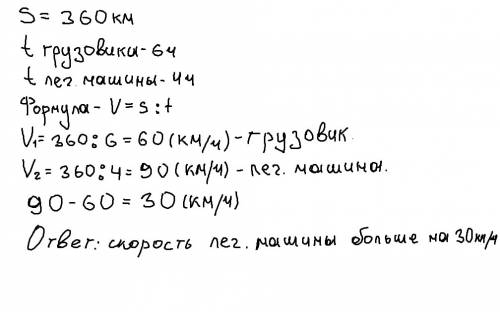 S = 360 км
t грузовики - 6ч
t лег. машины - 4ч
Формула - V = s : t
V₁ = 360 : 6 = 60 (км/ч) - грузовик.
V₂ = 360 : 4 = 90 (км/ч) - лег. машина.
90 - 60 = 30 (км/ч)
Ответ: скорость лег. машины больше на 30км/ч